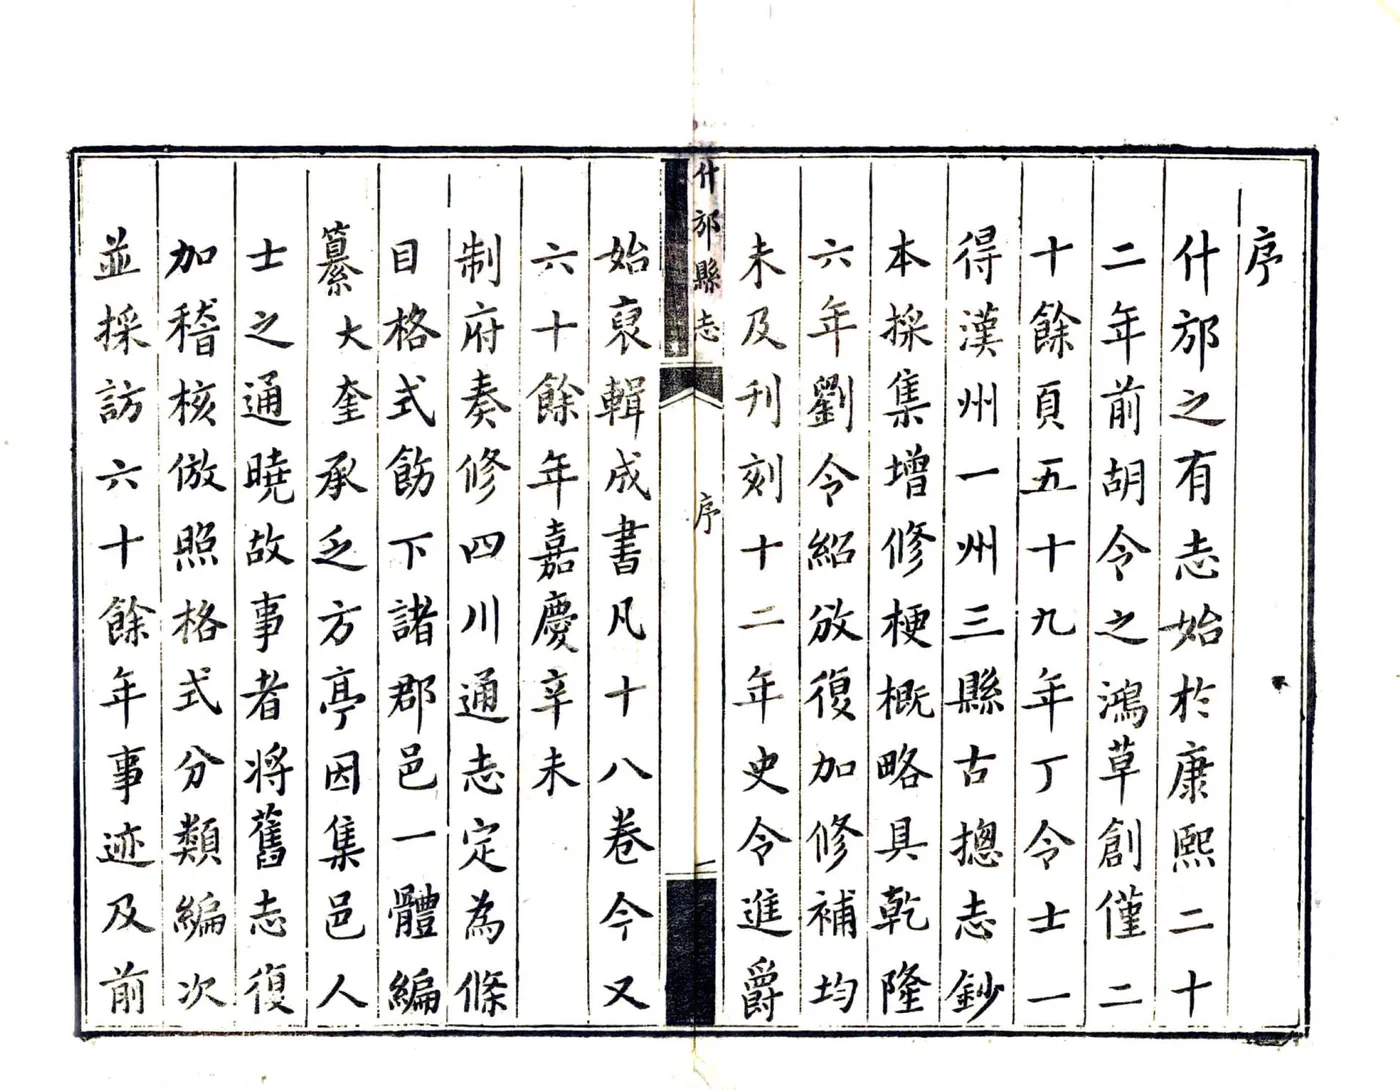 序
什邡之有志始於康熙二十
二年前胡令之鴻草創僅二
十餘頁五十九年丁令士一
得漢州一州三縣古摠志鈔
本採集增修梗概略具乾隆
六年劉令紹攽復加修補均
未及刊刻十二年史令進爵
什邡縣志
序
一
始裒輯成書凡十八卷今又
六十餘年嘉慶辛未
制府奏修四川通志定為條
目格式飭下諸郡邑一體編
纂大奎承乏方亭因集邑人
士之通曉故事者將舊志復
加稽核倣照格式分類編次
並採訪六十餘年事迹及前